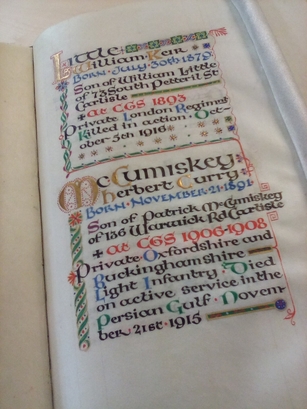 Little
William Keir
Born · July · 30th 1879
Son of William Little
of 73 South Petteril St
Carlisle
+ at CGS 1893
Private London Regiment
Killed in action · Oct-
ober 5th 1916
McCumiskey
Herbert Curry
Born · November · 21 · 1891
Son of Patrick McCumiskey
of 136 Warwick Rd Carlisle
+ at CGS 1906-1908
Private Oxfordshire and
Buckinghamshire
Light Infantry · Died
on active service in the
Persian Gulf · Novem-
ber 21st · 1915